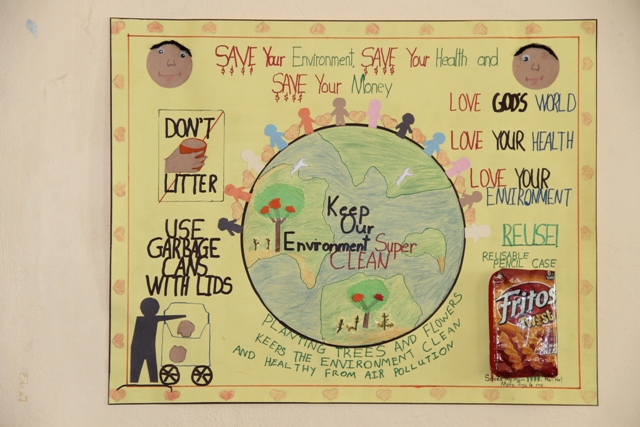 SAVE Your Environment, SAVE Your Health and
$$$$ $$$$
SAVE Your Money
$$$$
LOVE GOD'S WORLD
LOVE YOUR HEALTH
LOVE YOUR
ENVIRONMENT
DON'T
LITTER
USE
GARBAGE
CANS
WITH LIDS
Keep
Our
Environment Super
CLEAN
REUSE!
REUSABLE
PENCIL CASE
Fritos
PLANTING TREES AND FLOWERS
KEEPS THE ENVIRONMENT CLEAN
AND HEALTHY FROM AIR POLLUTION